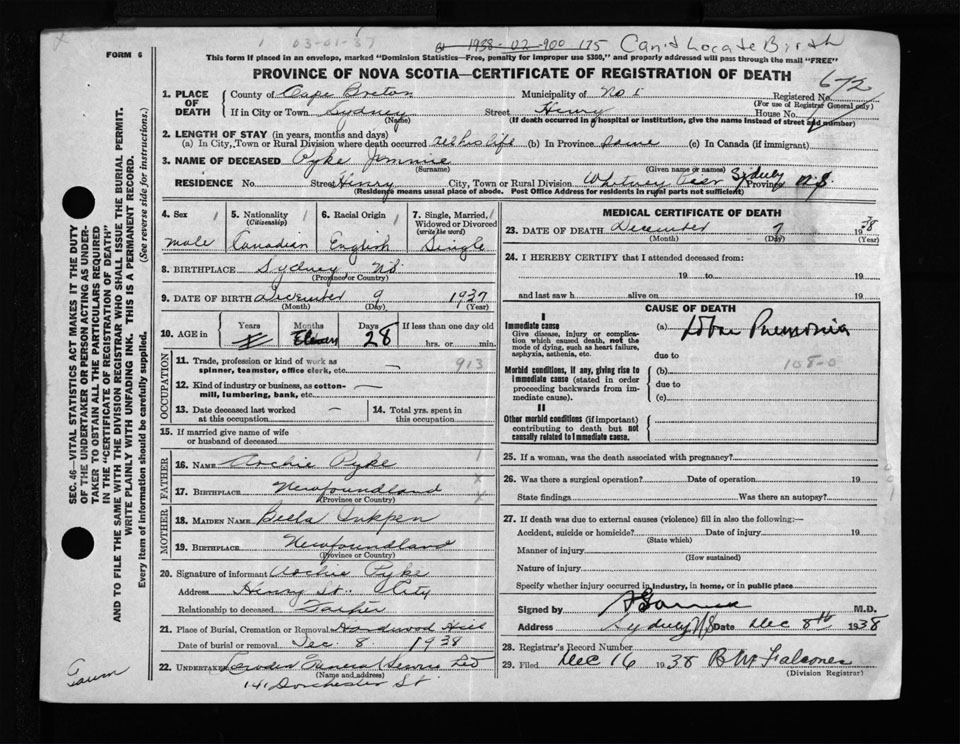 1 03-01-37 1938-02-900 175 Can't Locate Birth
FORM 6
This form if placed in an envelope, marked "Dominion Statistics—Free, penalty for improper use $300," and properly addressed will pass through the mail "FREE"
PROVINCE OF NOVA SCOTIA—CERTIFICATE OF REGISTRATION OF DEATH
672
SEC. 46—VITAL STATISTICS ACT MAKES IT THE DUTY
OF THE UNDERTAKER OR PERSON ACTING AS UNDER-
TAKER TO OBTAIN ALL THE PARTICULARS REQUIRED
IN THE "CERTIFICATE OF REGISTRATION OF DEATH"
AND TO FILE THE SAME WITH THE DIVISION REGISTRAR WHO SHALL ISSUE THE BURIAL PERMIT.
WRITE PLAINLY WITH UNFADING INK. THIS IS A PERMANENT RECORD.
Every item of information should be carefully supplied. (See reverse side for instructions.)
1. PLACE OF DEATH County of Cape Breton Municipality of No 1 Registered No.
(For use of Registrar General only)
If in City or Town Sydney Street Henry House No.
(Name) (If death occurred in a hospital or institution, give the name instead of street and number)
2. LENGTH OF STAY (in years, months and days)
(a) In City, Town or Rural Division where death occurred all his life (b) In Province Same (c) In Canada (if immigrant)
3. NAME OF DECEASED Pyke Jimmie
(Surname) (Given name or names)
RESIDENCE No. Street Henry City, Town or Rural Division Whitney Pier Sydney Province N.S.
(Residence means usual place of abode. Post Office Address for residents in rural parts not sufficient)
4. Sex male
5. Nationality (Citizenship) Canadian
6. Racial Origin English
7. Single, Married, Widowed or Divorced (write the word) Single
8. BIRTHPLACE Sydney NS
(Province or Country)
9. DATE OF BIRTH December 9 1937
(Month) (Day) (Year)
10. AGE in Years Months Eleven Days 28 If less than one day old
hrs. or min.
OCCUPATION
11. Trade, profession or kind of work as
spinner, teamster, office clerk, etc. — 913
12. Kind of industry or business, as cotton-
mill, lumbering, bank, etc. —
13. Date deceased last worked at this occupation —
14. Total yrs. spent in this occupation
15. If married give name of wife
or husband of deceased
FATHER
16. NAME Archie Pyke
17. BIRTHPLACE Newfoundland
(Province or Country)
MOTHER
18. MAIDEN NAME Inkpen
19. BIRTHPLACE Newfoundland
(Province or Country)
20. Signature of informant Archie Pyke
Address Henry St. City
Relationship to deceased Father
21. Place of Burial, Cremation or Removal Hardwood Hill
Date of burial or removal Dec 8. 1938
22. UNDERTAKER General Service Ltd
(Name and address)
141 Dorchester St
MEDICAL CERTIFICATE OF DEATH
23. DATE OF DEATH December 7 1938
(Month) (Day) (Year)
24. I HEREBY CERTIFY that I attended deceased from:
19 to 19
and last saw h alive on 19
CAUSE OF DEATH
I
Immediate cause (a) Lobar Pneumonia
Give disease, injury or complica-
tion which caused death, not the
mode of dying, such as heart failure,
asphyxia, asthenia, etc.
due to
108-0
Morbid conditions, if any, giving rise to (b)
immediate cause (stated in order due to
proceeding backwards from im-
mediate cause). (c)
II
Other morbid conditions (if important)
contributing to death but not
causally related to immediate cause.
25. If a woman, was the death associated with pregnancy?
26. Was there a surgical operation? Date of operation 19
State findings Was there an autopsy?
27. If death was due to external causes (violence) fill in also the following:—
Accident, suicide or homicide? Date of injury 19
(State which)
Manner of injury
(How sustained)
Nature of injury
Specify whether injury occurred in industry, in home, or in public place
Signed by M.D.
Address Sydney NS Date Dec 8th 1938
28. Registrar's Record Number
29. Filed Dec 16 1938 Falconer
(Division Registrar)